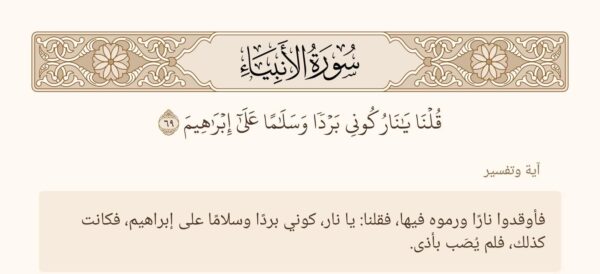 سُورَةُ الأَنبِيَاءِ
قُلْنَا يَـٰنَارُ كُونِي بَرْدًا وَسَلَـٰمًا عَلَىٰٓ إِبْرَٰهِيمَ ٦٩
آية وتفسير
فأوقدوا نارًا ورموه فيها، فقلنا: يا نار، كوني بردًا وسلامًا على إبراهيم، فكانت
كذلك، فلم يُصَب بأذى.